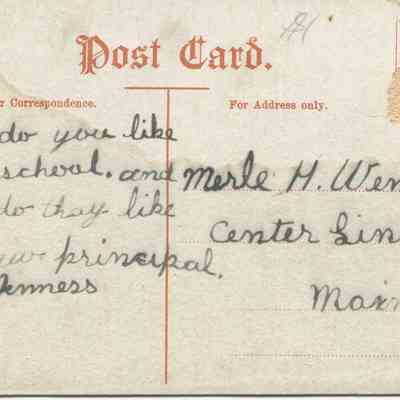 Post Card.
r Correspondence.
For Address only.
do you like
school. and
do thay like
principal.
Jenness
Merle H. Wen
Center Lin
Main